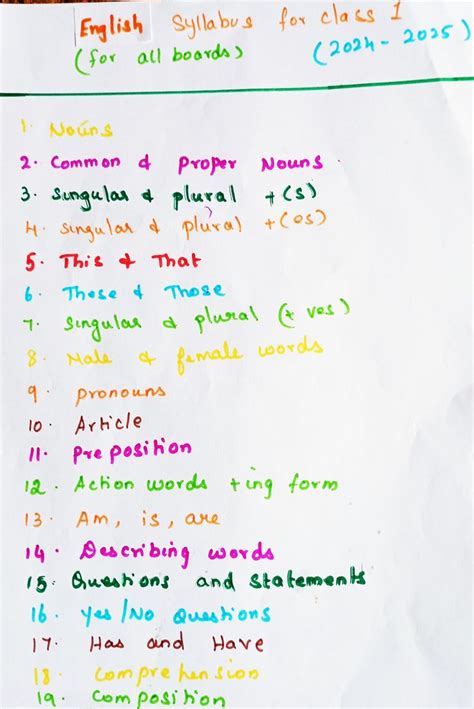 English Syllabus for class 1
(for all boards) (2024 - 2025)
1. Nouns
2. Common & Proper Nouns.
3. Singular & plural +(s)
4. Singular & plural +(es)
5. This & That
6. These & Those
7. Singular & plural (+ ves)
8. Male & female words
9. pronouns
10. Article
11. Preposition
12. Action words +ing form
13. Am, is, are
14. Describing words
15. Questions and Statements
16. Yes/No Questions
17. Has and Have
18. Comprehension
19. Composition